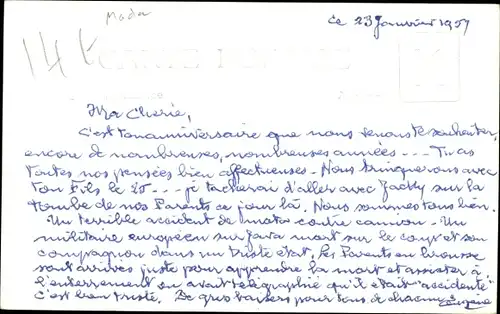 Moda
14 t
Ce 23 Janvier 1959
CARTE POSTALE
Ma Cherie,
C'est ton anniversaire que nous venons te souhaiter,
encore de nombreuses, nombreuses années --- Tu as
toutes nos pensées bien affectueuses - Nous trinquerons avec
ton Fils le 25 --- je tacherai d'aller avec Jacky sur la
tombe de nos Parents ce jour là. Nous sommes tous bien.
Un terrible accident de moto contre camion - Un
militaire européen sur Java mort sur le coup et son
compagnon dans un triste état, les Parents en brousse
sont arrivés juste pour apprendre la mort et assister à
l'enterrement on avait télégraphié qu'il etait "accidenté"
C'est bien triste. De gros baisers pour tous de chacun Eugénie